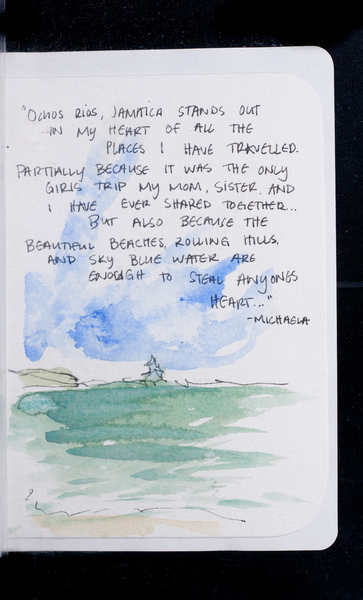 "OCHOS RIOS, JAMAICA STANDS OUT
IN MY HEART OF ALL THE
PLACES I HAVE TRAVELLED.
PARTIALLY BECAUSE IT WAS THE ONLY
GIRLS TRIP MY MOM, SISTER AND
I HAVE EVER SHARED TOGETHER..
BUT ALSO BECAUSE THE
BEAUTIFUL BEACHES, ROLLING HILLS,
AND SKY BLUE WATER ARE
ENOUGH TO STEAL ANYONES
HEART..."
-MICHAELA